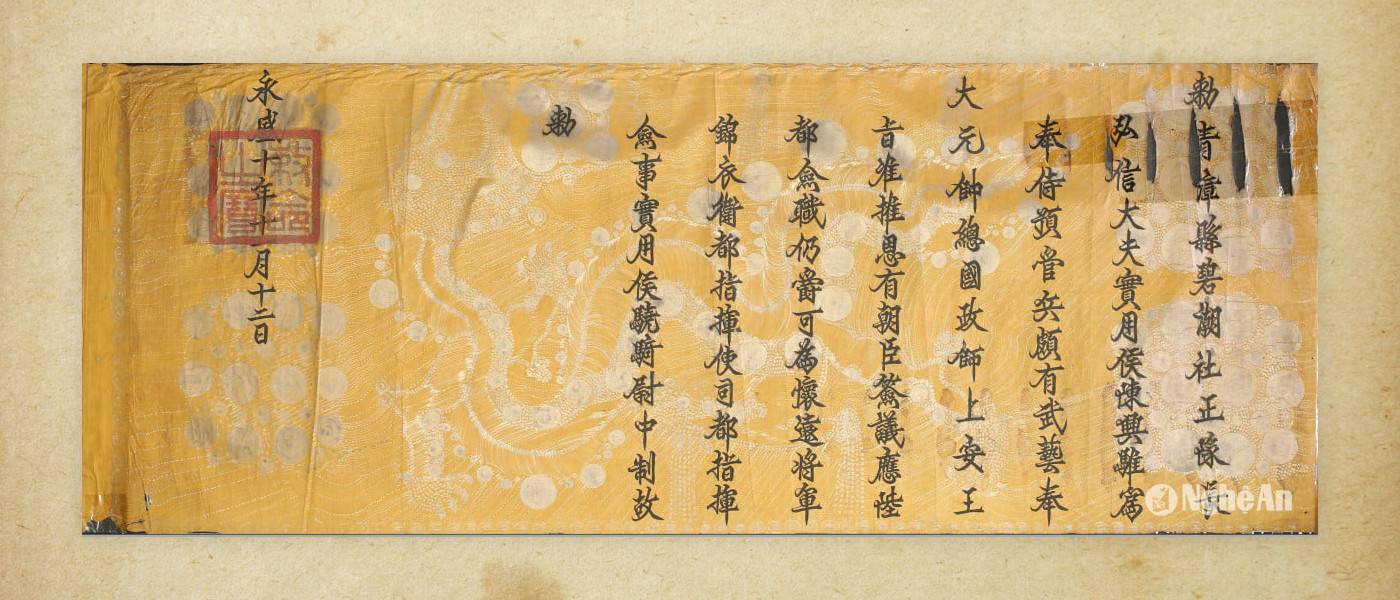 勅青漳縣碧湖社正隊長
弘信大夫實用侯陳興雖爲
奉侍預管兵頗有武藝奉
大元帥總國政師上安王
旨准推恩有朝臣僉議應陞
都僉職仍爵可爲懷遠將軍
錦衣衛都指揮使司都指揮
僉事實用侯驍騎尉中制故
勅
永盛十年十一月十二日
敕命之寶
NghệAn